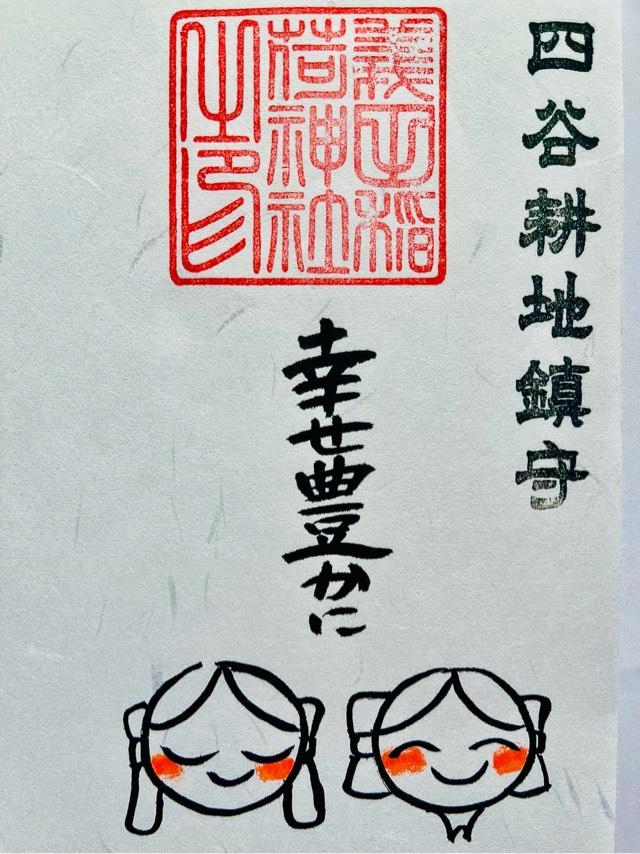 四谷耕地鎮守
義田稲
荷神社
之印
幸せ豊かに